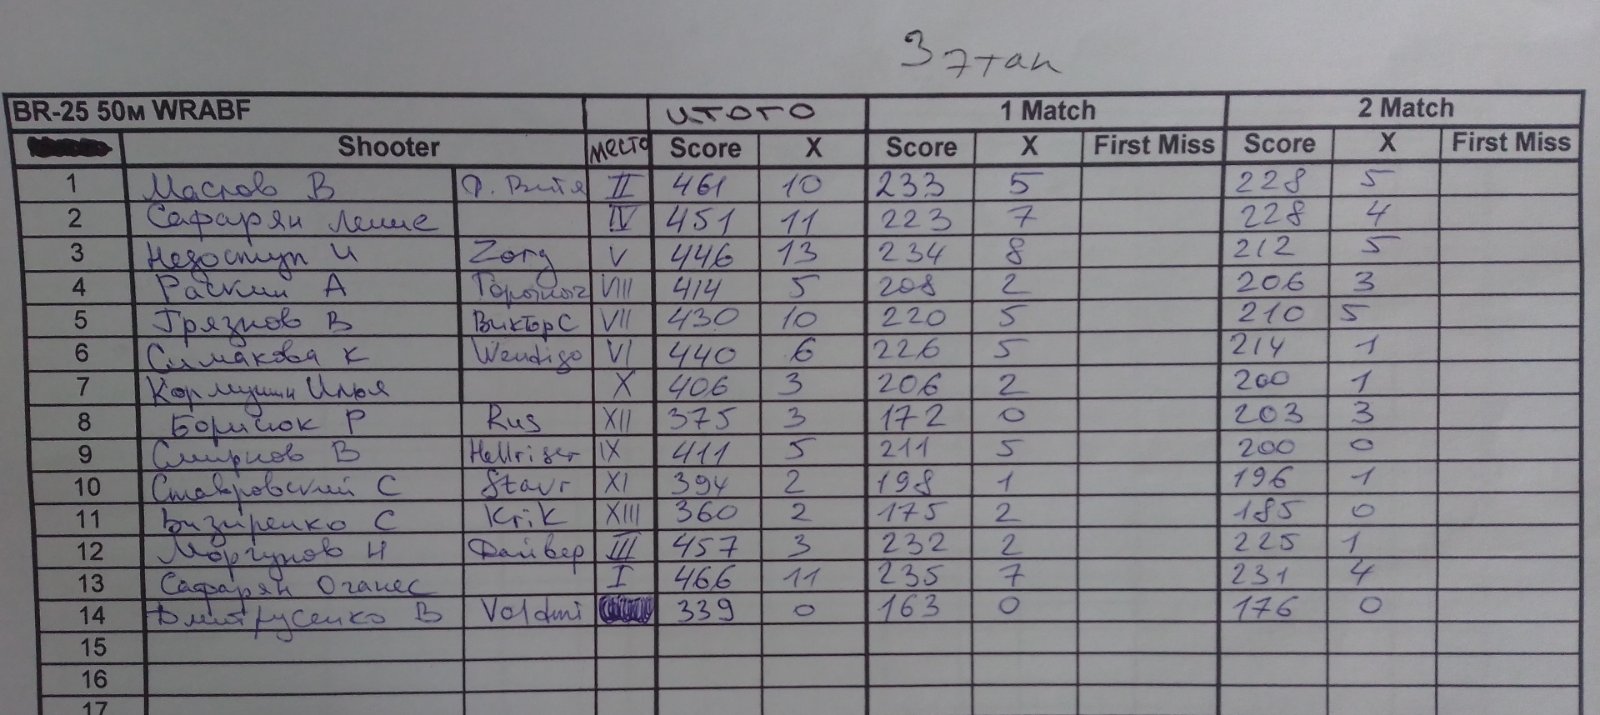 3 этап
BR-25 50м WRABF итого 1 Match 2 Match
Shooter место Score X Score X First Miss Score X First Miss
1 Маслов В д. Витя II 461 10 233 5 228 5
2 Сафарян IV 451 11 223 7 228 4
3 Недоступ И Zorg V 446 13 234 8 212 5
4 Раскин А Горыныч VIII 414 5 208 2 206 3
5 Грязнов В Виктор С VII 430 10 220 5 210 5
6 Симакова К Wendigo VI 440 6 226 5 214 1
7 Кормушин Илья X 406 3 206 2 200 1
8 Борисюк Р Rus XII 375 3 172 0 203 3
9 Смирнов В Hellriser IX 411 5 211 5 200 0
10 Ставровский С Stavr XI 394 2 198 1 196 1
11 Визиренко С Krik XIII 360 2 175 2 185 0
12 Моргунов Н Дайвер III 457 3 232 2 225 1
13 Сафарян Оганес I 466 11 235 7 231 4
14 Дмитрусенко В Voldmi 339 0 163 0 176 0
15
16
17